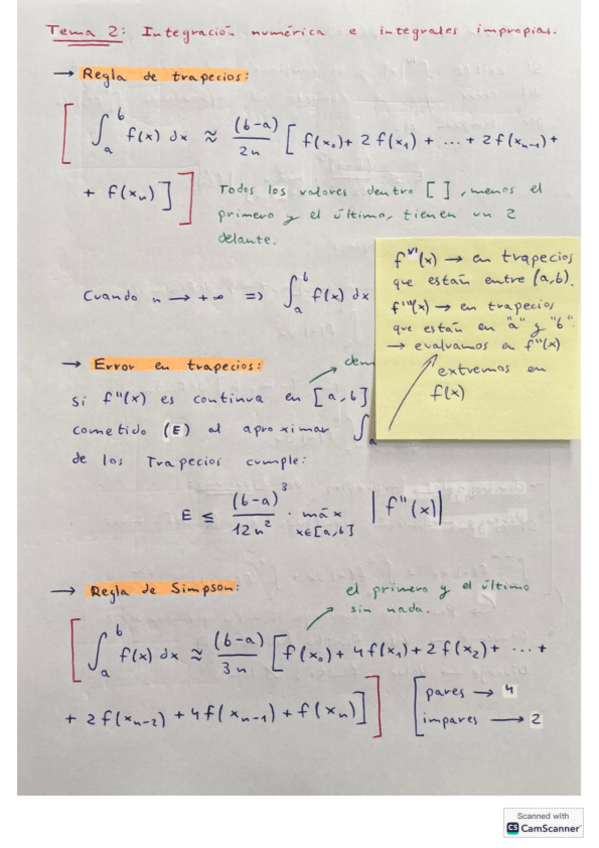 Tema 2: Integración numérica e integrales impropias.
→ Regla de trapecios:
[ ∫_a^b f(x) dx ≈ (b-a)/2n [ f(x₀) + 2 f(x₁) + ... + 2 f(xₙ₋₁) +
+ f(xₙ) ] ]
Todos los valores dentro [ ], menos el
primero y el último, tienen un 2
delante.
Cuando n → +∞ => ∫_a^b f(x) dx
f''(x) → en trapecios
que están entre (a,b).
f'''(x) → en trapecios
que están en "a" y "b"
→ evaluamos en f''(x)
extremos en
f(x)
→ Error en trapecios:
Si f''(x) es continua en [a,b]
cometido (E) al aproximar ∫_a
de los Trapecios cumple:
E ≤ (b-a)³/12n² · máx x∈[a,b] |f''(x)|
→ Regla de Simpson:
el primero y el último
sin nada.
[ ∫_a^b f(x) dx ≈ (b-a)/3n [ f(x₀) + 4 f(x₁) + 2 f(x₂) + ... +
+ 2 f(xₙ₋₂) + 4 f(xₙ₋₁) + f(xₙ) ] ]
[ pares → 4
impares → 2
Scanned with
CS CamScanner